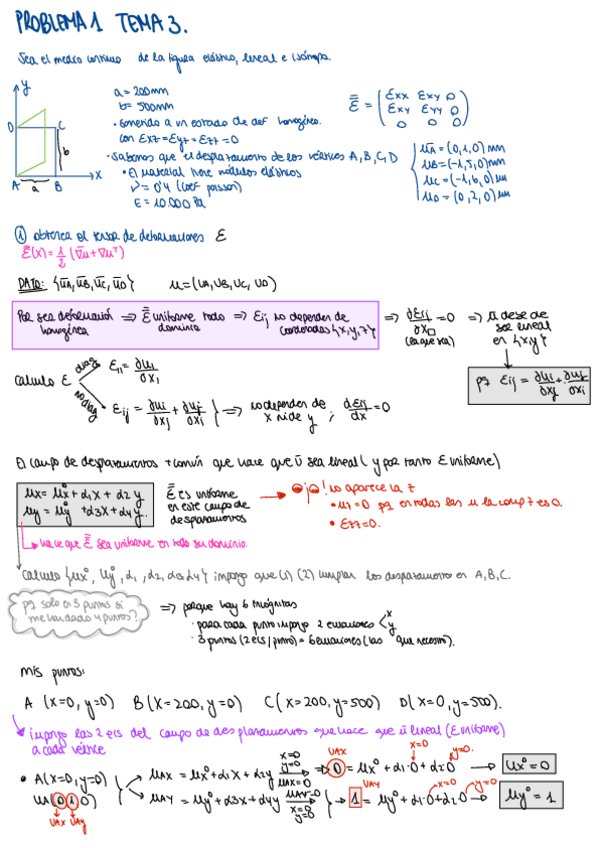 PROBLEMA 1 TEMA 3.
Sea el medio continuo de la figura elástico, lineal e isótropo.
y
D C
b
A a B x
a = 200mm
b = 500mm
· sometido a un estado de def homogéneo.
con εxz = εyz = εzz = 0
· Sabemos que el desplazamiento de los vértices A, B, C, D
· El material tiene módulos elásticos
ν = 0'4 (coef poisson)
E = 10.000 Pa
ε̿ = ( εxx εxy 0
εxy εyy 0
0 0 0 )
uA = (0, 1, 0) mm
uB = (-1, 5, 0) mm
uC = (-1, 6, 0) mm
uD = (0, 2, 0) mm
① obtener el tensor de deformaciones ε
ε̿(x) = 1/2 (∇u + ∇uᵀ)
DATO: {uA, uB, uC, uD} u = (uA, uB, uC, uD)
Por ser deformación homogénea ⇒ ε̿ uniforme todo dominio ⇒ εij no dependen de coordenadas {x, y, z} ⇒ ∂εij/∂x□ = 0 (la que sea) ⇒ u debe de ser lineal en {x, y}
calculo ε
diag ε11 = ∂u1/∂x1
no diag εij = ∂ui/∂xj + ∂uj/∂xi } ⇒ no dependen de x ni de y ; ∂εij/∂x = 0
pq εij = ∂ui/∂xj + ∂uj/∂xi
El campo de desplazamientos + común que hace que u sea lineal (y por tanto ε uniforme)
ux = ux⁰ + α1x + α2y
uy = uy⁰ + α3x + α4y.
ε̿ es uniforme en este campo de desplazamientos
¡! no aparece la z
• uz = 0 pq en todas las u la comp z es 0.
• εzz = 0.
hace que ε̿ sea uniforme en todo su dominio.
Calculo {ux⁰, uy⁰, α1, α2, α3, α4} impongo que (1) (2) cumplan los desplazamientos en A, B, C.
pq solo en 3 puntos si me han dado 4 puntos?
⇒ porque hay 6 incógnitas
· para cada punto impongo 2 ecuaciones x y
· 3 puntos (2 ecs/punto) = 6 ecuaciones (las que necesito).
mis puntos:
A (x=0, y=0) B (x=200, y=0) C (x=200, y=500) D (x=0, y=500).
impongo las 2 ecs del campo de desplazamientos que hace que u lineal (ε uniforme)
a cada vértice
• A(x=0, y=0)
uA(0 1 0)
uAx uAy
uAx = ux⁰ + α1x + α2y x=0 y=0 uAx=0 → 0 = ux⁰ + α1·0 + α2·0 → ux⁰ = 0
uAx x=0 y=0.
uAy = uy⁰ + α3x + α4y uAy=0 x=0 y=0 → 1 = uy⁰ + α1·0 + α2·0 → uy⁰ = 1
uAy x=0 y=0